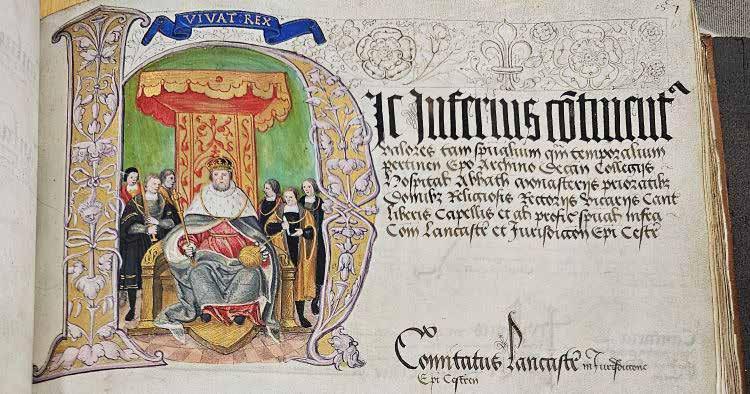 VIVAT REX
Hic Inferius cōtinent
valores tam spūalium qm̄ temporalium
pertinen Epo Archino Decan Collegijs
Hospital Abbath monasterijs prioratibz
Domibz Religiosis Rectorijs Vicarijs Cant
liberis Capellis et al profic spūal infra
Com Lancastr et Jurisdiccon Epi Cestr
Comitatus Lancastr in Jurisdiccione
Epi Cestren